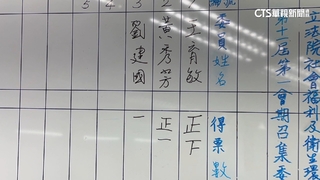 CTS華視新聞
立法院社會福利及衛生環
第十一屆第一會期召集委
委員姓名 得票數
1 王育敏 正下
2 黃秀芳 正一
3 劉建國 一
4
5